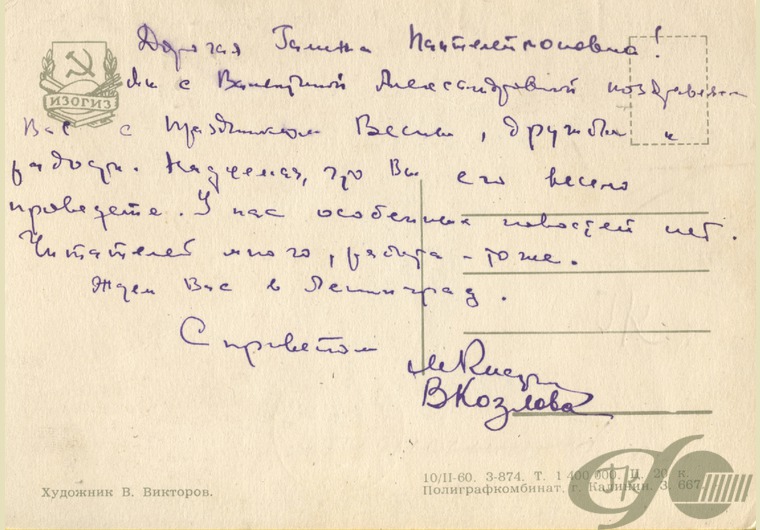 Дорогая Галина Пантелеймоновна!
Мы с Валентиной Александровной поздравляем
Вас с праздником Весны, дружбы и
радости. Надеемся, что Вы его весело
проведете. У нас особенных новостей нет.
Читателей много, работы - тоже.
Ждем Вас в Ленинград.
С приветом
В Козлова
ИЗОГИЗ
Художник В. Викторов.
10/II-60. З-874. Т. 1 400 000. Ц. 20 к.
Полиграфкомбинат, г. Калинин. З. 667